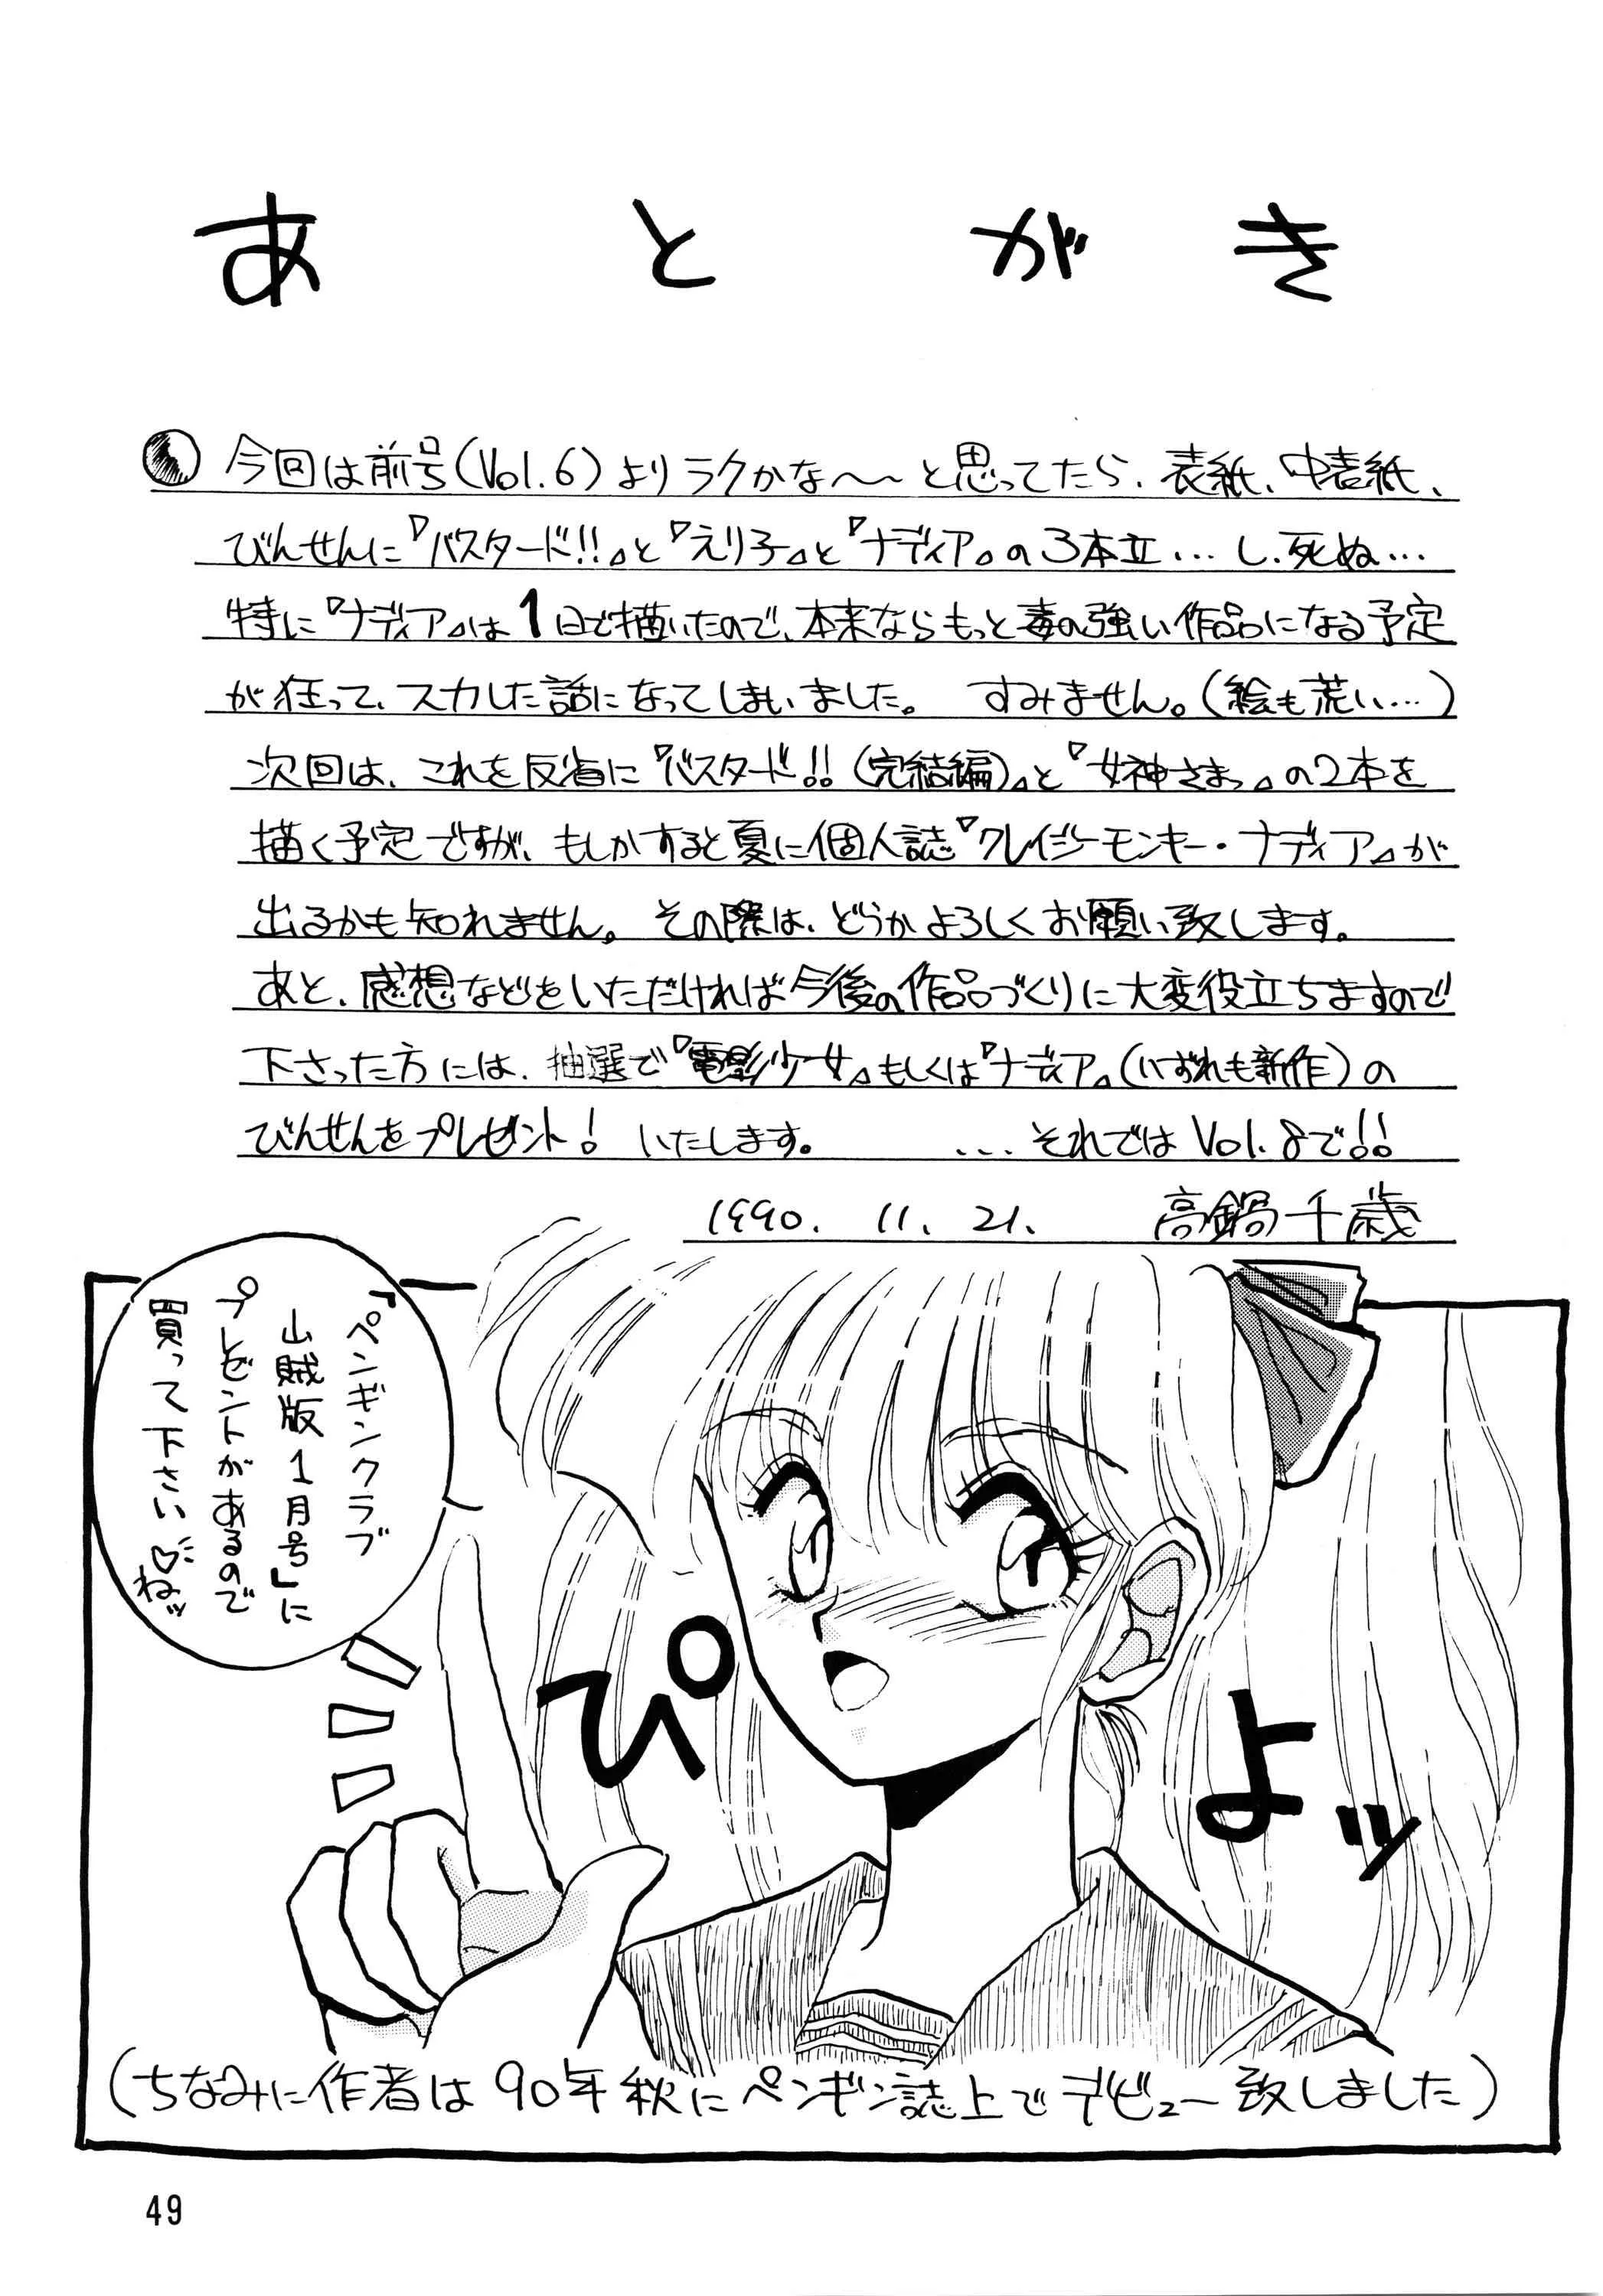 あとがき
今回は前号(Vol.6)よりラクかな〜〜と思ってたら、表紙、中表紙、
びんせんに『バスタード!!』と『えり子』と『ナディア』の3本立…し、死ぬ…
特に『ナディア』は1日で描いたので、本来ならもっと毒の強い作品になる予定
が狂って、スカした話になってしまいました。 すみません。(絵も荒い…)
次回は、これを反省に『バスタード!!(完結編)』と『女神さまっ』の2本を
描く予定ですが、もしかすると夏に個人誌『クレイジーモンキー・ナディア』が
出るかも知れません。その際は、どうかよろしくお願い致します。
あと、感想などをいただければ今後の作品づくりに大変役立ちますので
下さった方には、抽選で『電影少女』もしくは『ナディア』(いずれも新作)の
びんせんをプレゼント! いたします。 …それではVol.8で!!
1990. 11. 21. 高鍋千歳
『ペンギンクラブ
山賊版1月号』に
プレゼントがあるので
買って下さい♡
ねッ
ぴ
よッ
(ちなみに作者は90年秋にペンギン誌上でデビュー致しました)
49